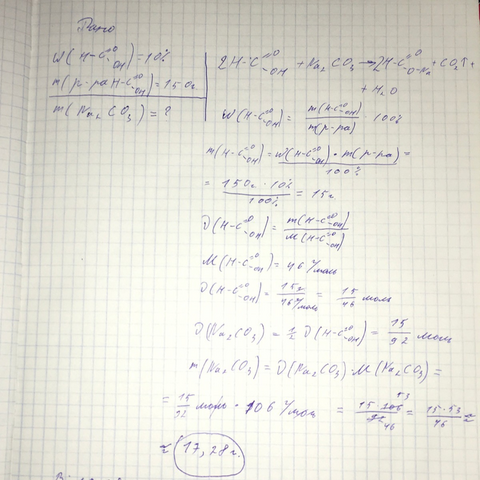 Дано
W(H-C=O-OH)=10%
m(р-ра H-C=O-OH)=150г
m(Na₂CO₃)=?
2H-C=O-OH + Na₂CO₃ → 2H-C=O-O-Na + CO₂↑ +
+ H₂O
W(H-C=O-OH) = m(H-C=O-OH) / m(р-ра) · 100%
m(H-C=O-OH) = W(H-C=O-OH) · m(р-ра) / 100% =
= 150г · 10% / 100% = 15г
D(H-C=O-OH) = m(H-C=O-OH) / M(H-C=O-OH)
M(H-C=O-OH) = 46 г/моль
D(H-C=O-OH) = 15г / 46г/моль = 15/46 моль
D(Na₂CO₃) = 1/2 D(H-C=O-OH) = 15/92 моль
m(Na₂CO₃) = D(Na₂CO₃) · M(Na₂CO₃) =
= 15/92 моль · 106 г/моль = 15 · 106 53 / 92 46 = 15 · 53 / 46 ≈
≈ 17,28г.